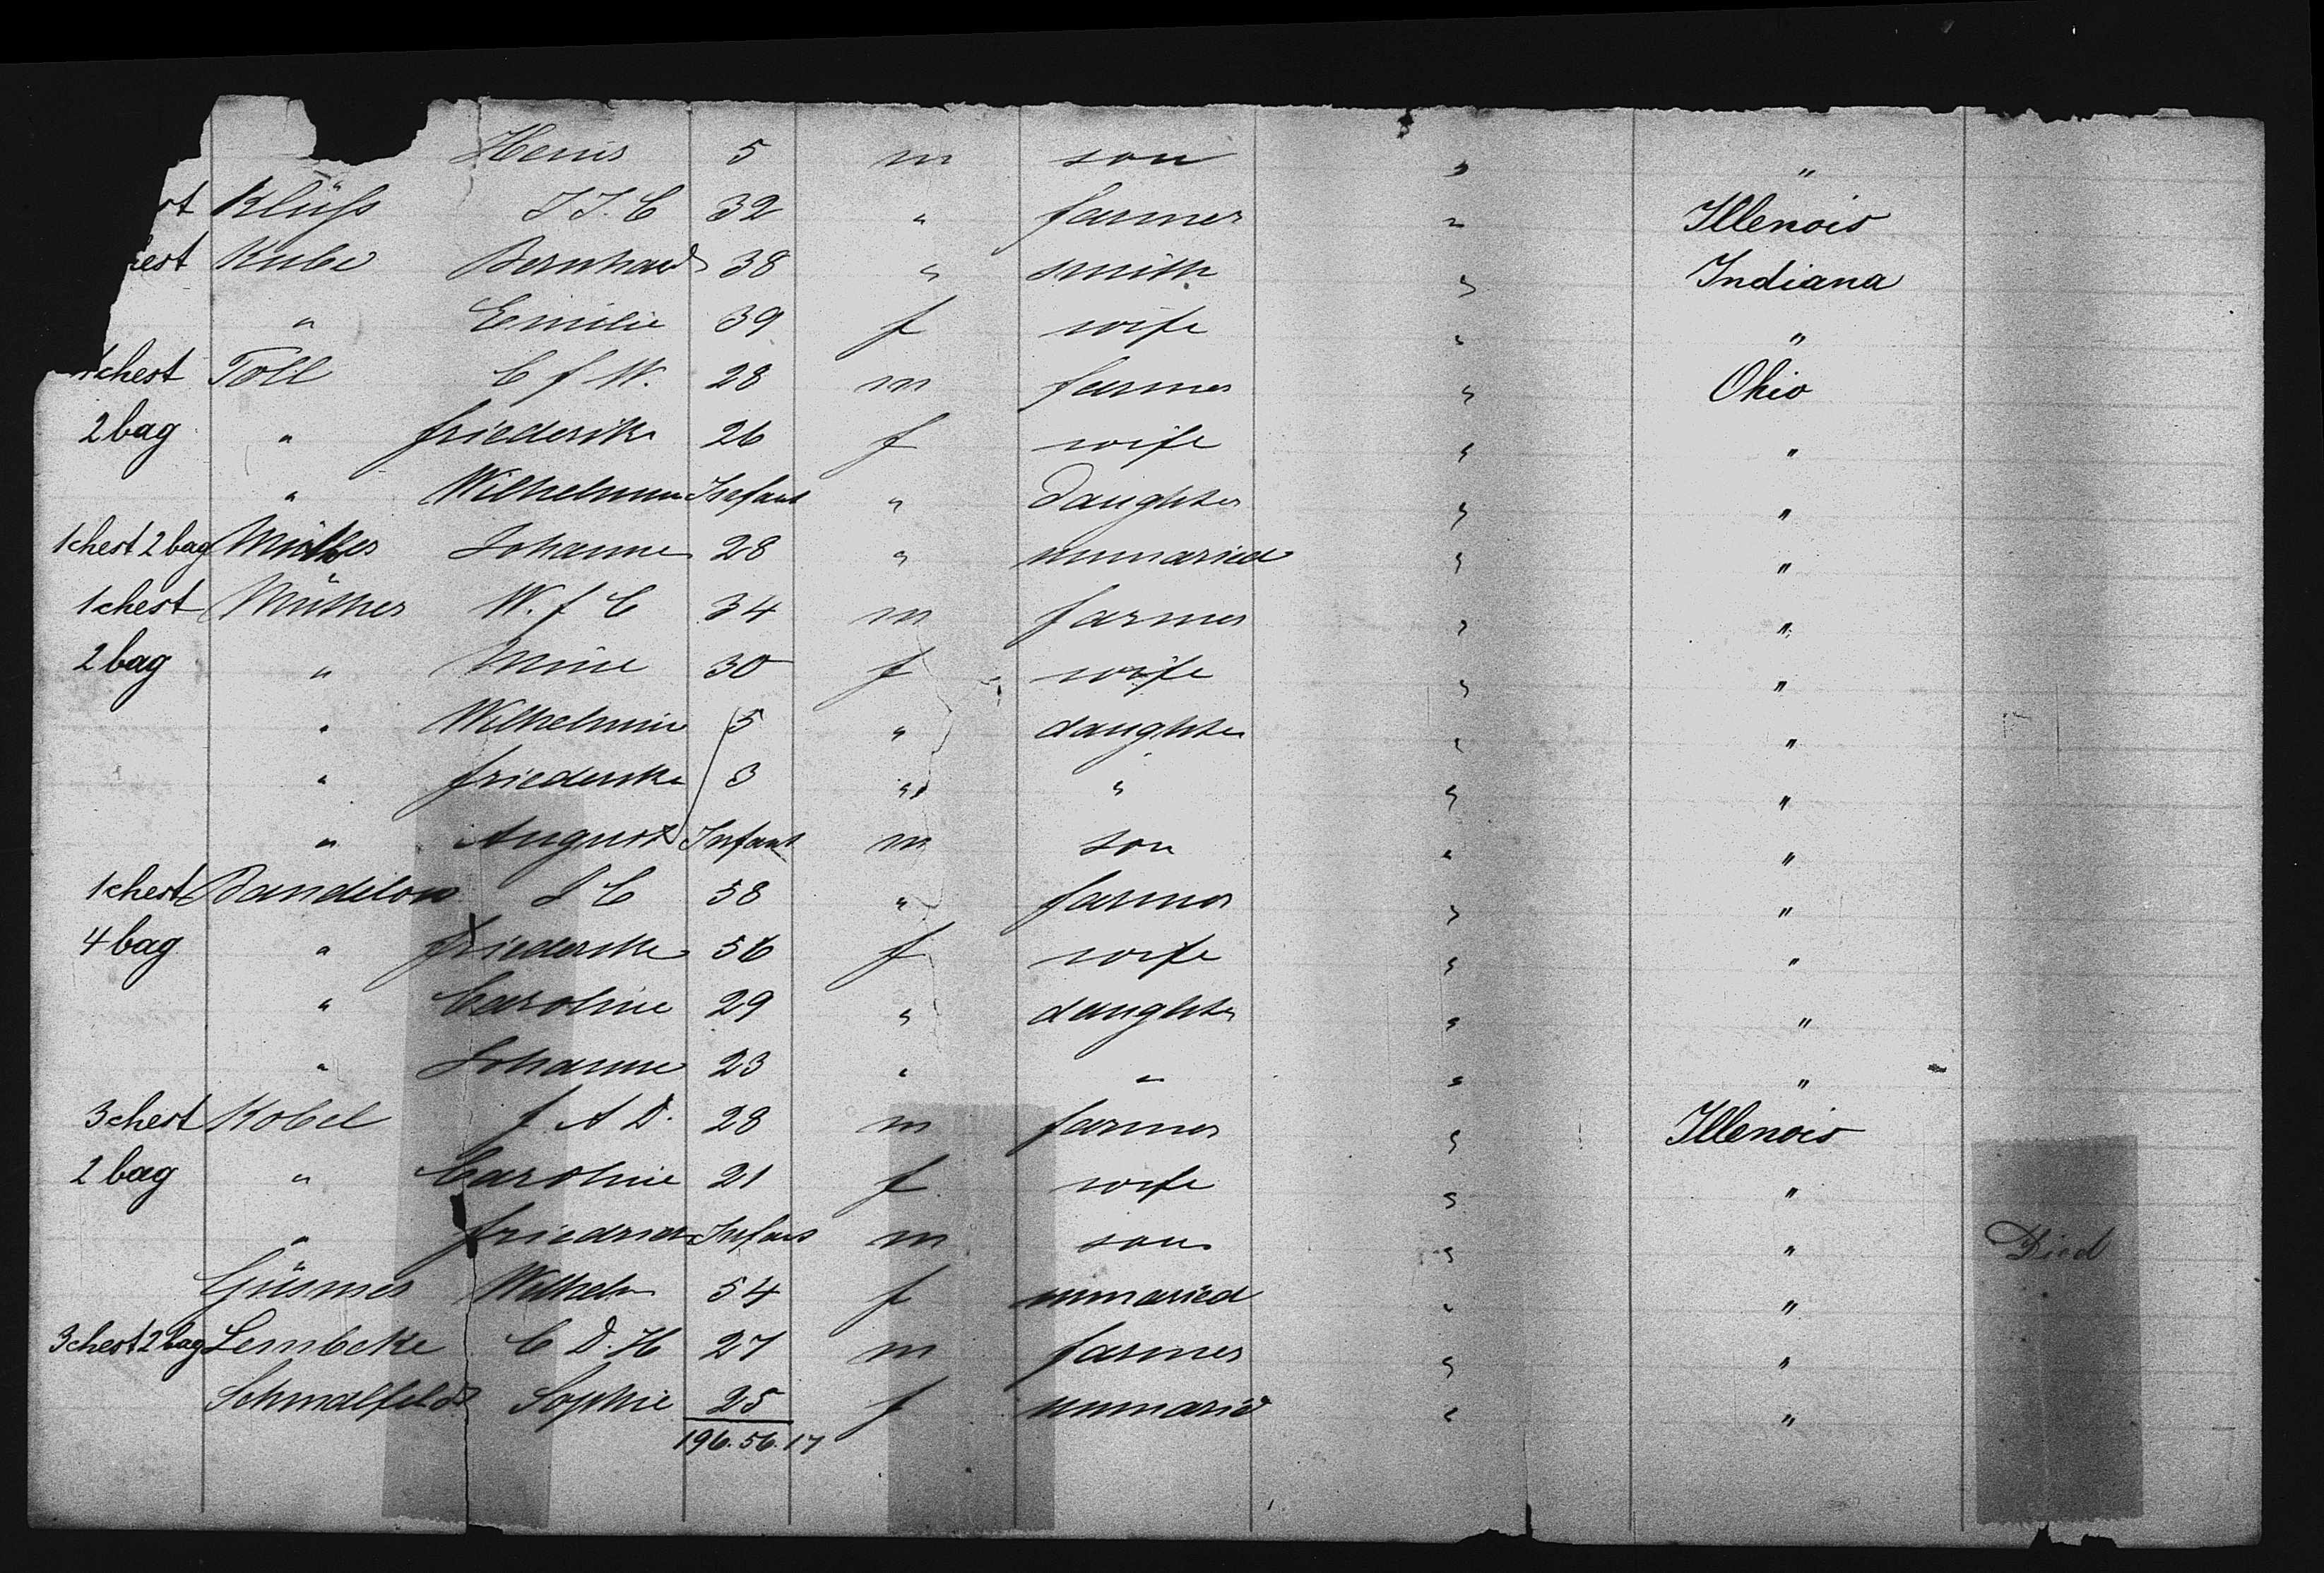 " Henri 5 m son " "
st Klüss J. J. C 32 " farmer " Illenois
hest Kube Bernhard 38 " smith " Indiana
" Emilie 39 f wife " "
1 chest Toll C f W. 28 m farmer " Ohio
2 bag " friederike 26 f wife " "
" Wilhelmine Infant " daughter " "
1 chest 2 bag Müller Johanne 28 " unmaried " "
1 chest Müther W. f C 34 m farmer " "
2 bag " Mine 30 f wife " "
" Wilhelmine 5 " daughter " "
" friederike 3 " " " "
" August Infant m son " "
1 chest Bandelow J C 58 " farmer " "
4 bag " friederike 56 f wife " "
" Caroline 29 " daughter " "
" Johanne 23 " " " "
3 chest Kobel f. A D. 28 m farmer " Illenois
2 bag " Caroline 21 f wife " "
" friedrich Infant m son " " Died
Wilhelm 54 f unmaried " "
3 chest 2 bag Lembcke C D. H 27 m farmer " "
Schmalfeldt Sophie 25 f unmaried " "
196. 56. 17